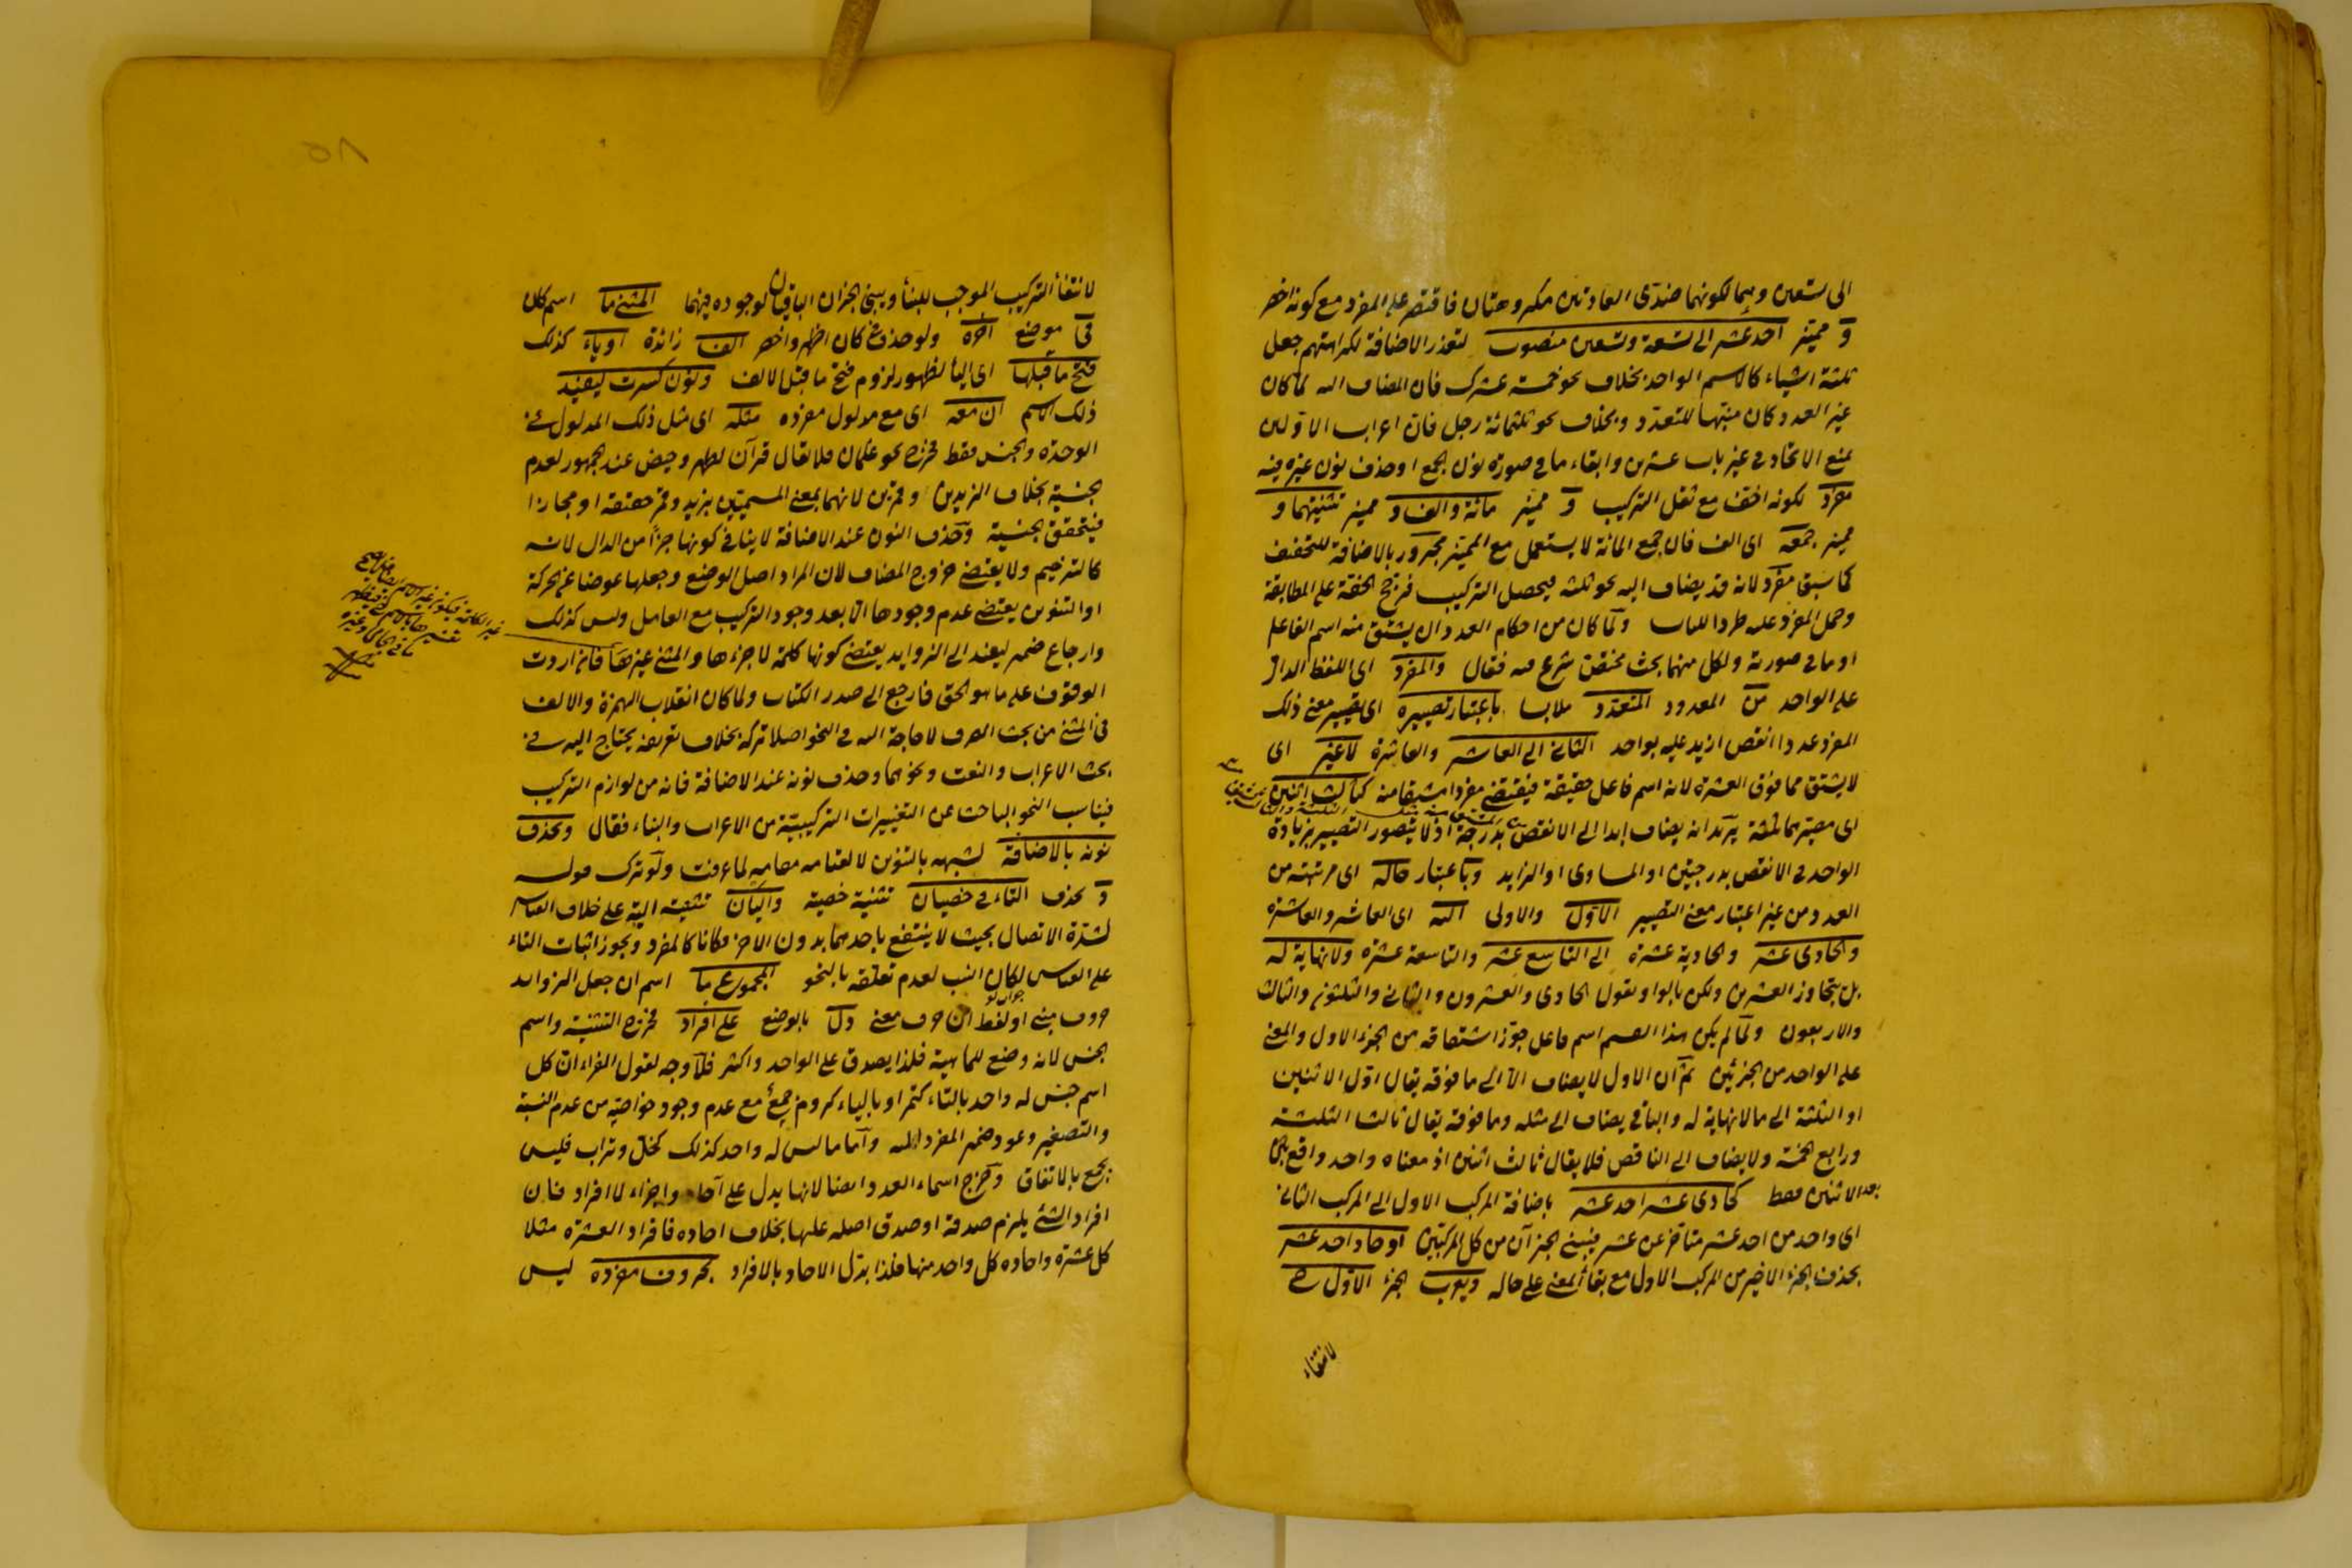 الى تسعين وهما لكونهما ضدّى العادتين مكروهتان فاقتصر على المفرد مع كونه اخصر
و مميّز احد عشر الى تسعة وتسعين منصوب لتعذر الاضافة لكراهتهم جعل
ثلثة اشياء كالاسم الواحد بخلاف نحو خمسة عشرك فان المضاف اليه لما كان
غير العدد كان منبها للتعدد وبخلاف نحو ثلثمائة رجل فان اعراب الاولين
يمنع الاتحاد فى غير باب عشرين وابقاء ما فى صورة نون الجمع او حذف نون غيره فيه
مفرد لكونه اخف مع ثقل التركيب و مميّز مائة والف و مميز تثنيتهما و
مميز جمعه اى الف فان جمع المائة لا يستعمل مع المميّز مجرور بالاضافة للتخفيف
كما سبق مفرد لانه قد يضاف اليه نحو ثلثه فيحصل التركيب فرجح الخفة على المطابقة
وحمل المفرد عليه طردا للباب ولما كان من احكام العدد ان يشتق منه اسم الفاعل
او ما فى صورته ولكل منهما بحث مختص شرع فيه فقال والمفرد اى اللفظ الدال
على الواحد من المعدود المتعدد ملابسا باعتبار تصييره اى تصيير معنى ذلك
المفرد عددا انقص ازيد عليه بواحد الثانى الى العاشر والعاشرة لا غير اى
لا يشتق مما فوق العشرة لانه اسم فاعل حقيقة فيقتضى مفردا مشتقا منه كثالث اثنين
اى مصيّرهما ثلثة يريد انه يضاف ابدا الى الانقص بدرجة اذ لا يتصور التصيير بزيادة
الواحد فى الانقص بدرجتين او المساوى او الزايد وباعتبار حاله اى مرتبته من
العدد من غير اعتبار معنى التصيير الاول والاولى اليه اى العاشر والعاشرة
والحادى عشر والحادية عشرة الى التاسع عشر والتاسعة عشرة ولا نهاية له
بل يتجاوز العشرين ولكن بالواو تقول الحادى والعشرون والثانى والثلثون والثالث
والاربعون ولما لم يكن هذا القسم اسم فاعل جوز اشتقاقه من الجزء الاول والمعنى
على الواحد من الجزئين ثم ان الاول لا يضاف الا الى ما فوقه يقال اول الاثنين
او الثلثة الى ما لا نهاية له والباقى يضاف الى مثله وما فوقه يقال ثالث الثلثة
ورابع الخمسة ولا يضاف الى الناقص فلا يقال ثالث اثنين اذ معناه واحد واقع
بعد الاثنين فقط كحادى عشر احد عشر باضافة المركب الاول الى المركب الثانى
اى واحد من احد عشر متأخر عن عشر فيبنى الجزآن من كل المركبين او حاد احد عشر
بحذف الجزء الاخير من المركب الاول مع بقاء المعنى على حاله ويعرب الجزء الاول ح
لانتفاء
لانتفاء التركيب الموجب للبناء ويبنى الجزان الباقيان لوجوده فيهما المثنى ما اسم كان
فى موضع آخره ولو حذف فى كان اظهر واخصر الف زائدة او ياء كذلك
فتح ما قبلها اى الياء لظهور لزوم فتح ما قبل الالف ونون كسرت ليفيد
ذلك الاسم ان معه اى مع مدلول مفرده مثله اى مثل ذلك المدلول فى
الوحدة والجنس فقط فخرج نحو علمان فلا يقال قرآن لطهر وحيض عند الجمهور لعدم
الجنسية بخلاف الزيدين وقمرين لانهما بمعنى المسميين بزيد وقمر حقيقة او مجازا
فيتحقق الجنسية وحذف النون عند الاضافة لا ينافى كونها جزأ من الدال لانه
كالترخيم ولا يقتضى خروج المضاف لان المراد اصل الوضع وجعلها عوضا عن الحركة
او التنوين يقتضى عدم وجودها الا بعد وجود التركيب مع العامل وليس كذلك
وارجاع ضمير ليفيد الى الزوايد يقتضى كونها كلمة لا جزءها والمثنى غيرها فان اردت
الوقوف على ما هو الحق فارجع الى صدر الكتاب ولما كان انقلاب الهمزة والالف
فى المثنى من بحث الصرف لا حاجة اليه فى النحو اصلا تركه بخلاف تعريفه يحتاج اليه فى
بحث الاعراب والنعت ونحوهما وحذف نونه عند الاضافة فانه من لوازم التركيب
فيناسب النحو الباحث عن التغييرات التركيبية من الاعراب والبناء فقال ويحذف
نونه بالاضافة لشبهه بالتنوين لا لقيامه مقامه لما عرفت ولو ترك قوله
و يحذف التاء فى خصيان تثنية خصية واليان تثنية الية على خلاف القياس
لشدة الاتصال بحيث لا ينتفع باحدهما بدون الاخر فكانا كالمفرد ويجوز اثبات التاء
على القياس لكان انسب لعدم تعلقه بالنحو المجموع ما اسم ان جعل الزوائد
حروف مبنى او لفط ان حروف معنى دل بالوضع على افراد فخرج التثنية واسم
الجنس لانه وضع للماهية فلذا يصدق على الواحد واكثر فلا وجه لقول الفراء ان كل
اسم جنس له واحد بالتاء كتمر او بالياء كروم جمع مع عدم وجود خواصه من عدم النسبة
والتصغير وعود ضمير المفرد اليه واما ما ليس له واحد كذلك كخل وتراب فليس
بجمع بالاتفاق وخرج اسماء العدد ايضا لانها يدل على آحاد واجزاء لا افراد فان
افراد الشئ يلزم صدقه او صدق اصله عليها بخلاف احاده فافراد العشرة مثلا
كل عشرة واحاده كل واحد منها فلذا بدل الاحاد بالافراد بحروف مفرده ليس